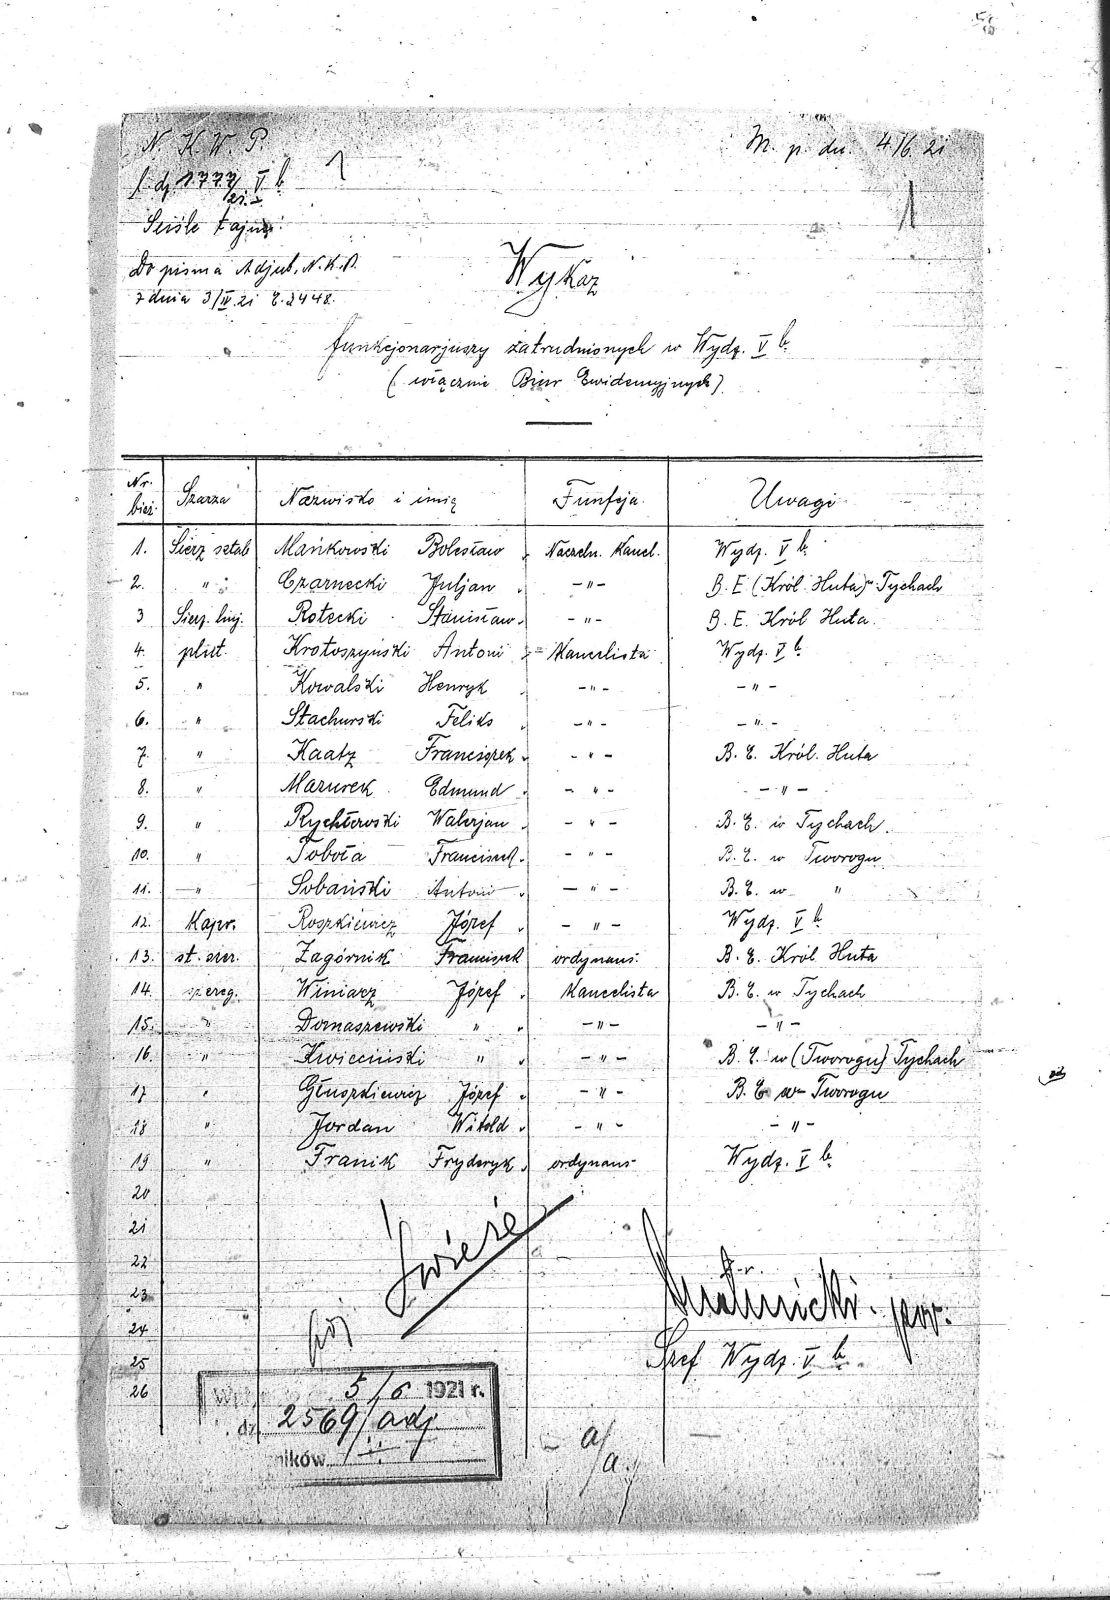 N. K. W. P.
M. p. dn. 4/6. 21
l. dz 1777/21. V b
1
1
Ściśle tajne.
Do pisma Adjut. N.K.P.
z dnia 3/IV.21 L.2448.
Wykaz
funkcjonarjuszy zatrudnionych w Wydz. V b.
(włącznie Biur Ewidencyjnych)
Nr. bież. Szarża Nazwisko i imię Funkcja Uwagi
1. Sierż sztab Mańkowski Bolesław Naczeln. Kancl. Wydz. V b.
2. " Czarnecki Juljan -"- B. E (Król. Huta) Tychach
3 Sierż. linj. Rotecki Stanisław -"- B. E. Król Huta.
4. plut. Krotoszyński Antoni Kancelista Wydz. V b.
5. " Kowalski Henryk -"- -"-
6. " Stachurski Feliks -"- -"-
7. " Kaatz Franciszek -"- B. E. Król. Huta
8. " Mazurek Edmund -"- -"-
9. " Rychterski Walerjan -"- B. E. w Tychach.
10. " Toboła Franciszek -"- B. E. w Tworogu
11. " Sobański Antoni -"- B. E. w "
12. Kapr. Roszkiewicz Józef -"- Wydz. V b.
13. st. szer. Zagórnik Franciszek ordynans. B. E. Król Huta
14. szereg. Winiarz Józef Kancelista B. E. w Tychach
15. " Domaszewski " -"- -"-
16. " Kwieciński " -"- B. E. w (Tworogu) Tychach
17 " Głuszkiewicz Józef -"- B. E w Tworogu
18 " Jordan Witold -"- -"-
19 " Franik Fryderyk ordynans Wydz. V b.
20
21
22
23
24
25
26
pov.
Szef Wydz. V b.
5/6 1921 r.
dz. 2569/adj.
ników
a/a.